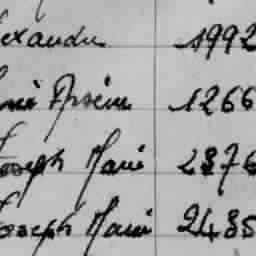 exandre 1992
Arsène 1266
Joseph Marie 2876
Joseph Marie 2485